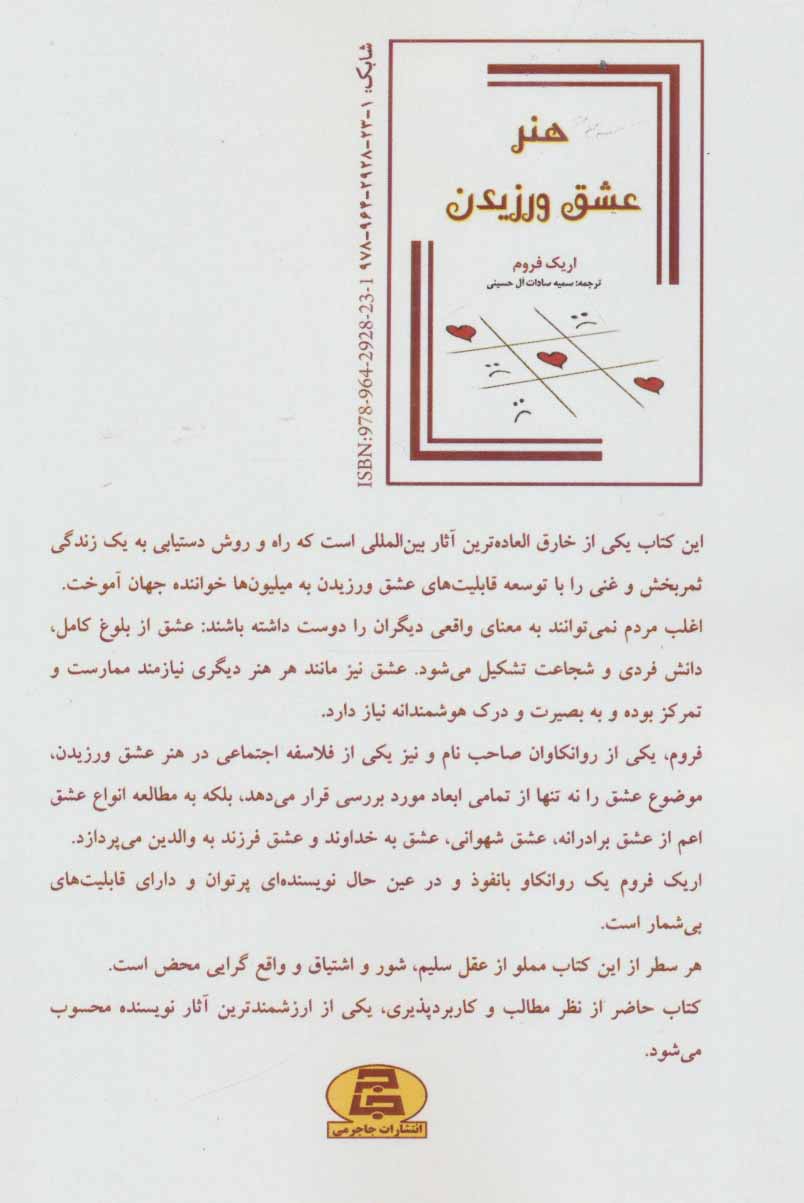 هنر
عشق ورزیدن
اریک فروم
ترجمه: سمیه سادات آل حسینی
شابک: ۱-۲۳-۲۹۲۸-۹۶۴-۹۷۸
ISBN:978-964-2928-23-1
این کتاب یکی از خارق العاده‌ترین آثار بین‌المللی است که راه و روش دستیابی به یک زندگی
ثمربخش و غنی را با توسعه قابلیت‌های عشق ورزیدن به میلیون‌ها خواننده جهان آموخت.
اغلب مردم نمی‌توانند به معنای واقعی دیگران را دوست داشته باشند: عشق از بلوغ کامل،
دانش فردی و شجاعت تشکیل می‌شود. عشق نیز مانند هر هنر دیگری نیازمند ممارست و
تمرکز بوده و به بصیرت و درک هوشمندانه نیاز دارد.
فروم، یکی از روانکاوان صاحب نام و نیز یکی از فلاسفه اجتماعی در هنر عشق ورزیدن،
موضوع عشق را نه تنها از تمامی ابعاد مورد بررسی قرار می‌دهد، بلکه به مطالعه انواع عشق
اعم از عشق برادرانه، عشق شهوانی، عشق به خداوند و عشق فرزند به والدین می‌پردازد.
اریک فروم یک روانکاو بانفوذ و در عین حال نویسنده‌ای پرتوان و دارای قابلیت‌های
بی‌شمار است.
هر سطر از این کتاب مملو از عقل سلیم، شور و اشتیاق و واقع گرایی محض است.
کتاب حاضر از نظر مطالب و کاربردپذیری، یکی از ارزشمندترین آثار نویسنده محسوب
می‌شود.
انتشارات جاجرمی